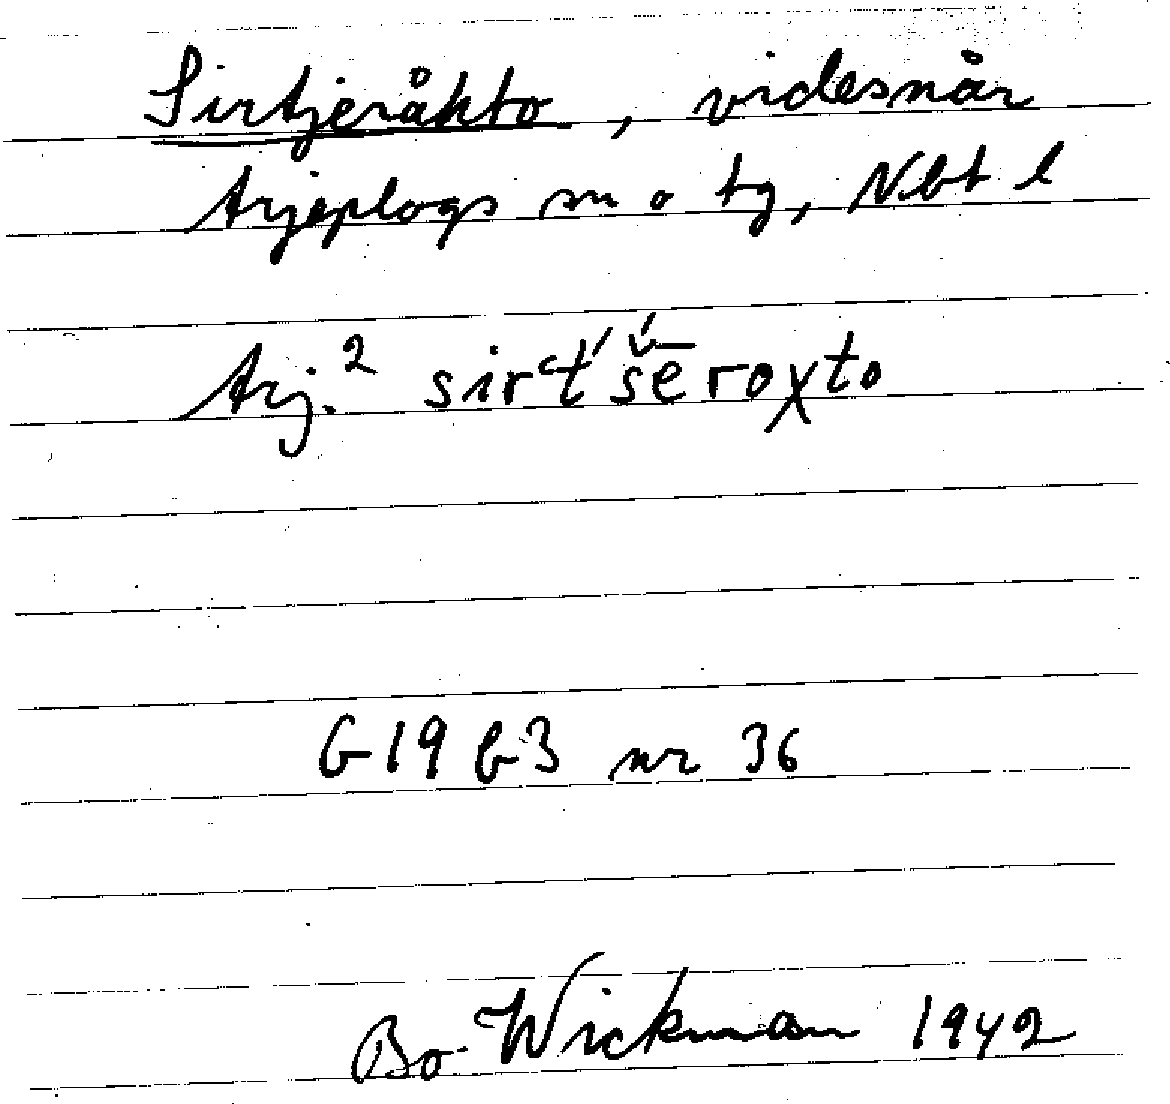 Sirtjeråkto, videsnår
Arjeplogs sn o tg, Nbt l
Arj.² sirʿt́š́ēroχto
G19 b3 nr 36
Bo Wickman 1942